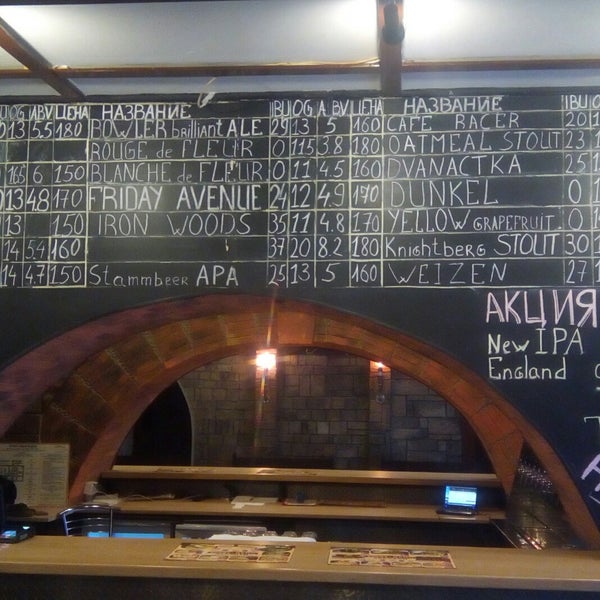 OG ABV ЦЕНА НАЗВАНИЕ IBU OG A.BV ЦЕНА НАЗВАНИЕ IBU
13 5.5 180 BOWLER brilliant ALE 29 13 5 160 CAFE RACER 20
ROUGE de FLEUR 0 11.5 3.8 180 OATMEAL STOUT 23
16.5 6 150 BLANCHE de FLEUR 0 11 4.5 160 DVANACTKA 25
13 4.8 170 FRIDAY AVENUE 24 12 4.9 170 DUNKEL 0
13 150 IRON WOODS 35 11 4.8 170 YELLOW GRAPEFRUIT 0
14 5.4 160 37 20 8.2 180 Knightberg STOUT 30
14 4.7 150 Stammbeer APA 25 13 5 160 WEIZEN 27
АКЦИЯ
New IPA
England